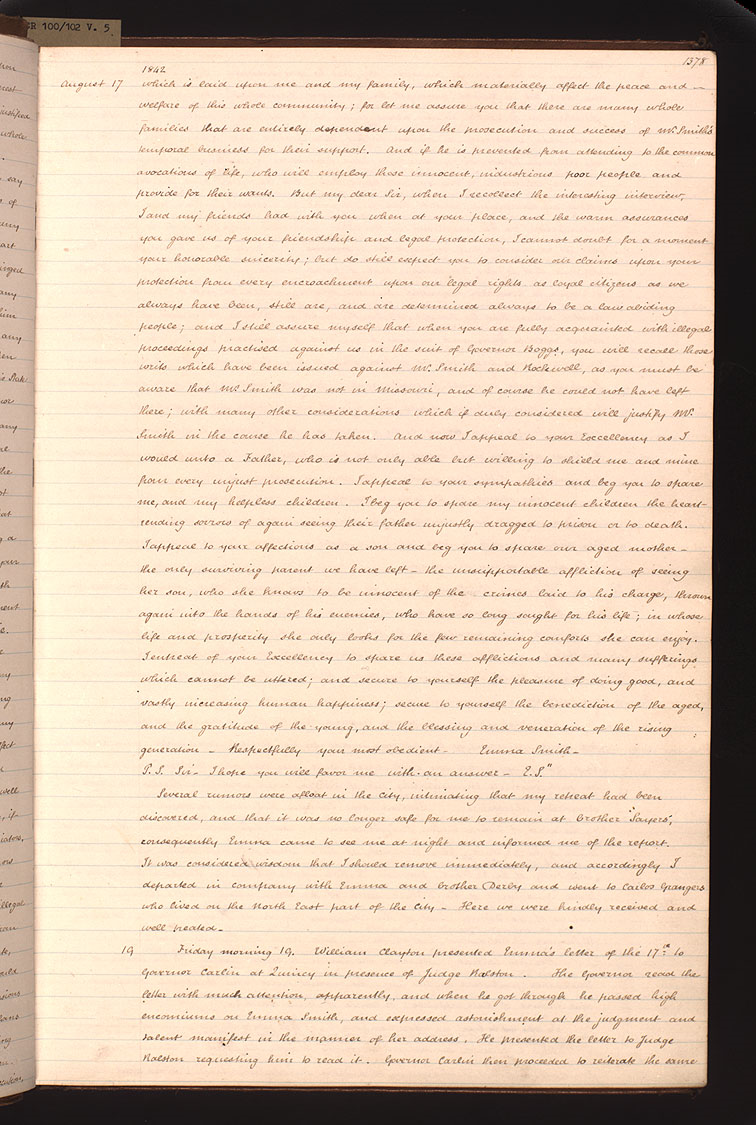 CR 100/102 V. 5
1378
1842
August 17 which is laid upon me and my family, which materially affect the peace and
welfare of this whole community; for let me assure you that there are many whole
families that are entirely dependent upon the prosecution and success of Mr. Smith's
temporal business for their support. And if he is prevented from attending to the common
avocations of life, who will employ those innocent, industrious poor people and
provide for their wants. But my dear Sir, when I recollect the interesting interview,
I and my friends had with you when at your place, and the warm assurances
you gave us of your friendship and legal protection, I cannot doubt for a moment
your honorable sincerity; but do still expect you to consider our claims upon your
protection from every encroachment upon our legal rights as loyal citizens as we
always have been, still are, and are determined always to be a law abiding
people; and I still assure myself that when you are fully acquainted with illegal
proceedings practised against us in the suit of Governor Boggs, you will recall those
writs which have been issued against Mr. Smith and Rockwell, as you must be
aware that Mr. Smith was not in Missouri, and of course he could not have left
there; with many other considerations which if duly considered will justify Mr.
Smith in the course he has taken. And now I appeal to your Excellency as I
would unto a Father, who is not only able but willing to shield me and mine
from every unjust prosecution. I appeal to your sympathies and beg you to spare
me, and my helpless children. I beg you to spare my innocent children the heart-
rending sorrow of again seeing their father unjustly dragged to prison or to death.
I appeal to your affections as a son and beg you to spare our aged mother –
the only surviving parent we have left – the unsupportable affliction of seeing
her son, who she knows to be innocent of the crimes laid to his charge, thrown
again into the hands of his enemies, who have so long sought for his life; in whose
life and prosperity she only looks for the few remaining comforts she can enjoy.
I entreat of your Excellency to spare us these afflictions and many sufferings
which cannot be uttered; and secure to yourself the pleasure of doing good, and
vastly increasing human happiness; secure to yourself the benediction of the aged,
and the gratitude of the young, and the blessing and veneration of the rising
generation – Respectfully your most obedient – Emma Smith –
P.S. Sir – I hope you will favor me with an answer – E.S."
Several rumors were afloat in the City, intimating that my retreat had been
discovered, and that it was no longer safe for me to remain at brother Sayers',
consequently Emma came to see me at night and informed me of the report.
It was considered wisdom that I should remove immediately, and accordingly I
departed in company with Emma and brother Derby and went to Carlos Grangers
who lived on the North East part of the City – Here we were kindly received and
well treated –
19 Friday morning 19. William Clayton presented Emma's letter of the 17th to
Governor Carlin at Quincy in presence of Judge Ralston. The Governor read the
letter with much attention, apparently, and when he got through he passed high
encomiums on Emma Smith, and expressed astonishment at the judgment and
talent manifest in the manner of her address. He presented the letter to Judge
Ralston requesting him to read it. Governor Carlin then proceeded to reiterate the same